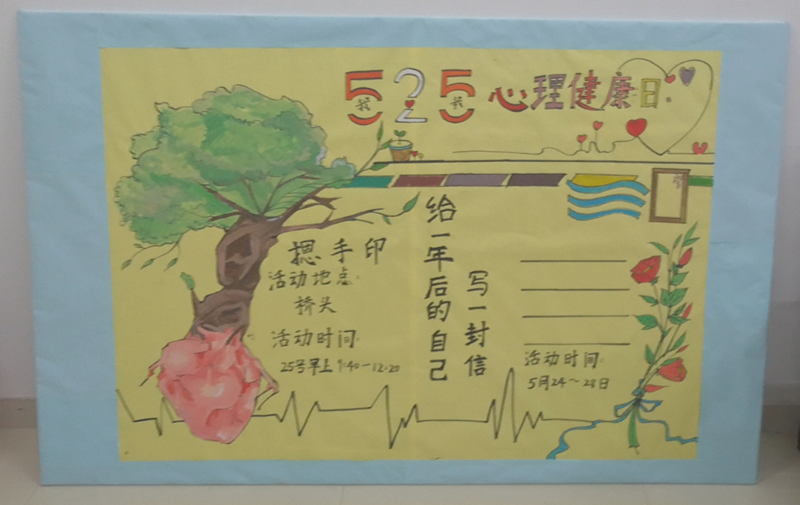 525心理健康日
我 我
摁手印
活动地点:
桥头
活动时间:
25号早上9:40-12:20
给一年后的自己
写一封信
活动时间:
5月24~28日